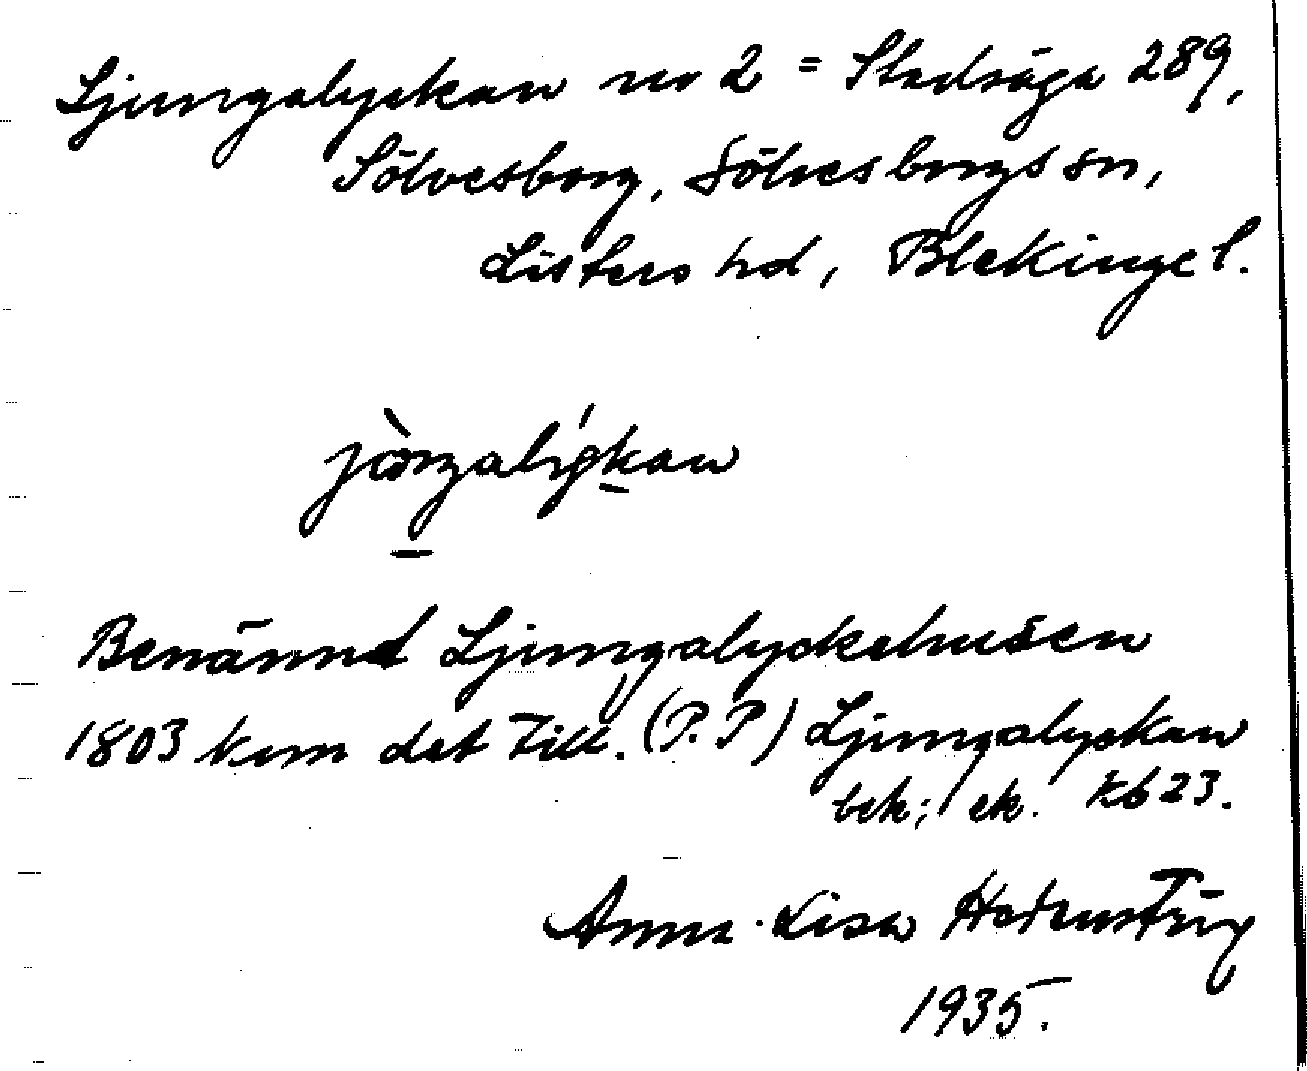 Ljungalyckan nr 2 = Stadsäga 289,
Sölvesborg, Sölvesborgs sn,
Listers hd, Blekinge l.
Benämnd Ljungalyckehusen
1803 kom det till. (P.P) Ljungalyckan
bek; ek. kb 23.
Anna-Lisa
1935.